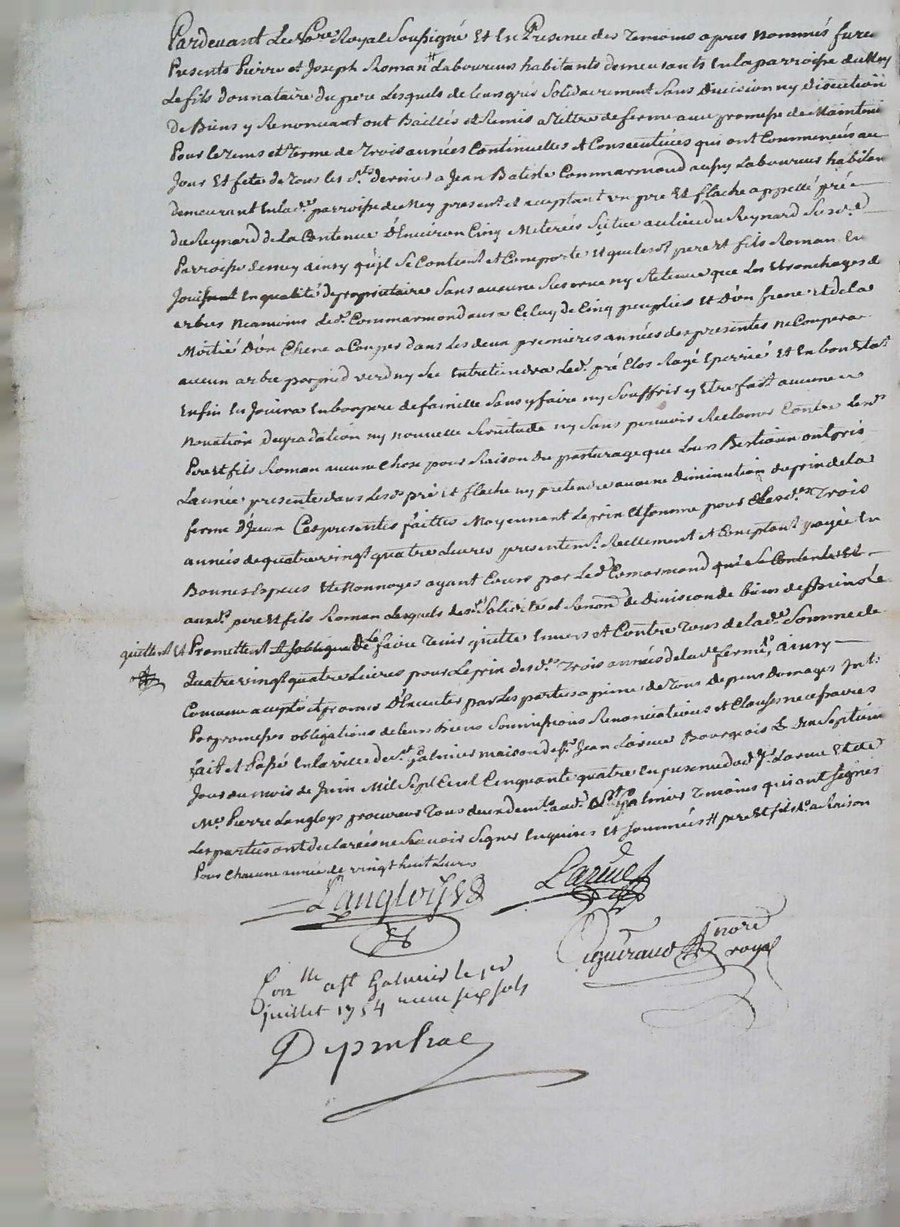 Pardevant Le No.re Royal Soussigné Et En Presence des Temoins apres nommés fure
Presents Pierre et Joseph Roman # Laboureurs habitants demeurants En la parroisse de
Le fils donnataire du pere Lesquels de leurs gré Solidairement Sans Division ny Discution
De Biens y Renoncant ont Baillés et Remis a Tittre de ferme avec promesse de Maintenir
Pour Le tems et terme de Trois années Continuelles et Consecutives qui ont Commencées au
Jour Et fete de Tous les S.ts dernier a Jean Batiste Commarmond aussy Laboureur habitan
demeurant En lad. parroisse de present et aceptant un pré Et flache appellé pré
du Reynard de la Contenue D'Environ Cinq Meterés Scitue au lieu du Reynard Susd.e
Parroisse de ainsy qu'jl Se Contient et Comporte Et que lesd. pere et fils Roman En
Jouissent En qualité de proprietaire Sans aucune Reserve ny Retenue que Les Ebranchages de
arbres Neamoins Led. Commarmond aura Celuy de Cinq peupliés Et D'un frene Et de la
Moitié D'un Chene a Couper dans Les deux premieres années des presentes ne Coupera
aucun arbre par pied verd ny Sec Entretiendra Led. pré Clos Razé Eperrié et En bon Etat
Enfin En Jouira En bon pere de famille Sans y faire ny Souffrir y Etre fait aucune
Novation degradation ny nouvelle Servitude ny Sans pouvoir Reclamer Contre Lesd.
Pere et fils Roman aucune Chose pour Raison du pasturage que Leurs Bestiaux ont pris
L'année presente dans Lesd. pré Et flache ny pretendre aucune Diminution du prix de la
ferme Ces presentes faittes Moyennant Le prix Et Somme pour Lesd. Trois
années de quatre vingt quatre Livres presentem.t Reellement et Comptant payée En
Bonnes Especes Et Monnoyes ayant Cours par Led. Comarmond qui Se Contentent Et
auxd. pere et fils Roman Lesquels de Solidité et Renon.on de Division de biens
quittent Et Promettent de Le faire Tenir quitte Envers et Contre Tous de lad. Somme de
Quatre vingt quatre Livres pour Le prix desd. Trois années de lad. ferme ainsy
Convenu acepté et promis D'Executer par Les parties a peine de Tous depens domages int.
Par promesses obligations de leurs Biens Soumissions Renonciations et Clauses necessaires
fait et Passé En la ville de S.t Galmier maison de S.r Jean Larüe Bourgeois Le
Jour du mois de Juin Mil Sept Cent Cinquante quatre En presence dud. S.r Larue Et de
M.e Pierre Langloys procureur Tous deux dem.ts aud. S.t Galmier Temoins qui ont Signés
Les parties ont declarées ne Scavoir Signer Enquises Et Sommées # pere Et fils a Raison
Pour Chacune année de vingt huit Livres
Langloys Larüe
royal
Con.lle a St Galmier le per
juillet 1754 six sols